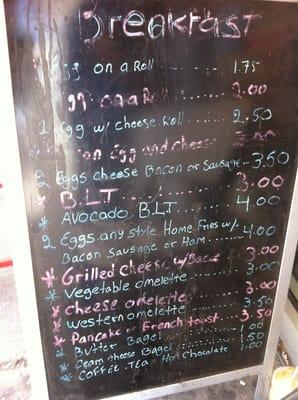 Breakfast
Egg on a Roll ........ 1.75
Egg on a Roll ........ 2.00
1 Egg w/ cheese Roll ..... 2.50
Egg and cheese
2 Eggs cheese Bacon or Sausage .. 3.50
* B.L.T ............ 3.00
* Avocado B.L.T ....... 4.00
2 Eggs any style Home Fries w/.
Bacon Sausage or Ham ..... 4.00
* Grilled Cheese w/Bacon ... 3.00
* Vegetable omelette ....... 3.00
* Cheese omelette ........ 3.00
* Western omelette ....... 3.50
* Pancake or French toast .. 3.50
* Butter Bagel ......... 1.00
* Cream cheese Bagel ...... 1.50
* Coffee .Tea Hot Chocolate 1.00